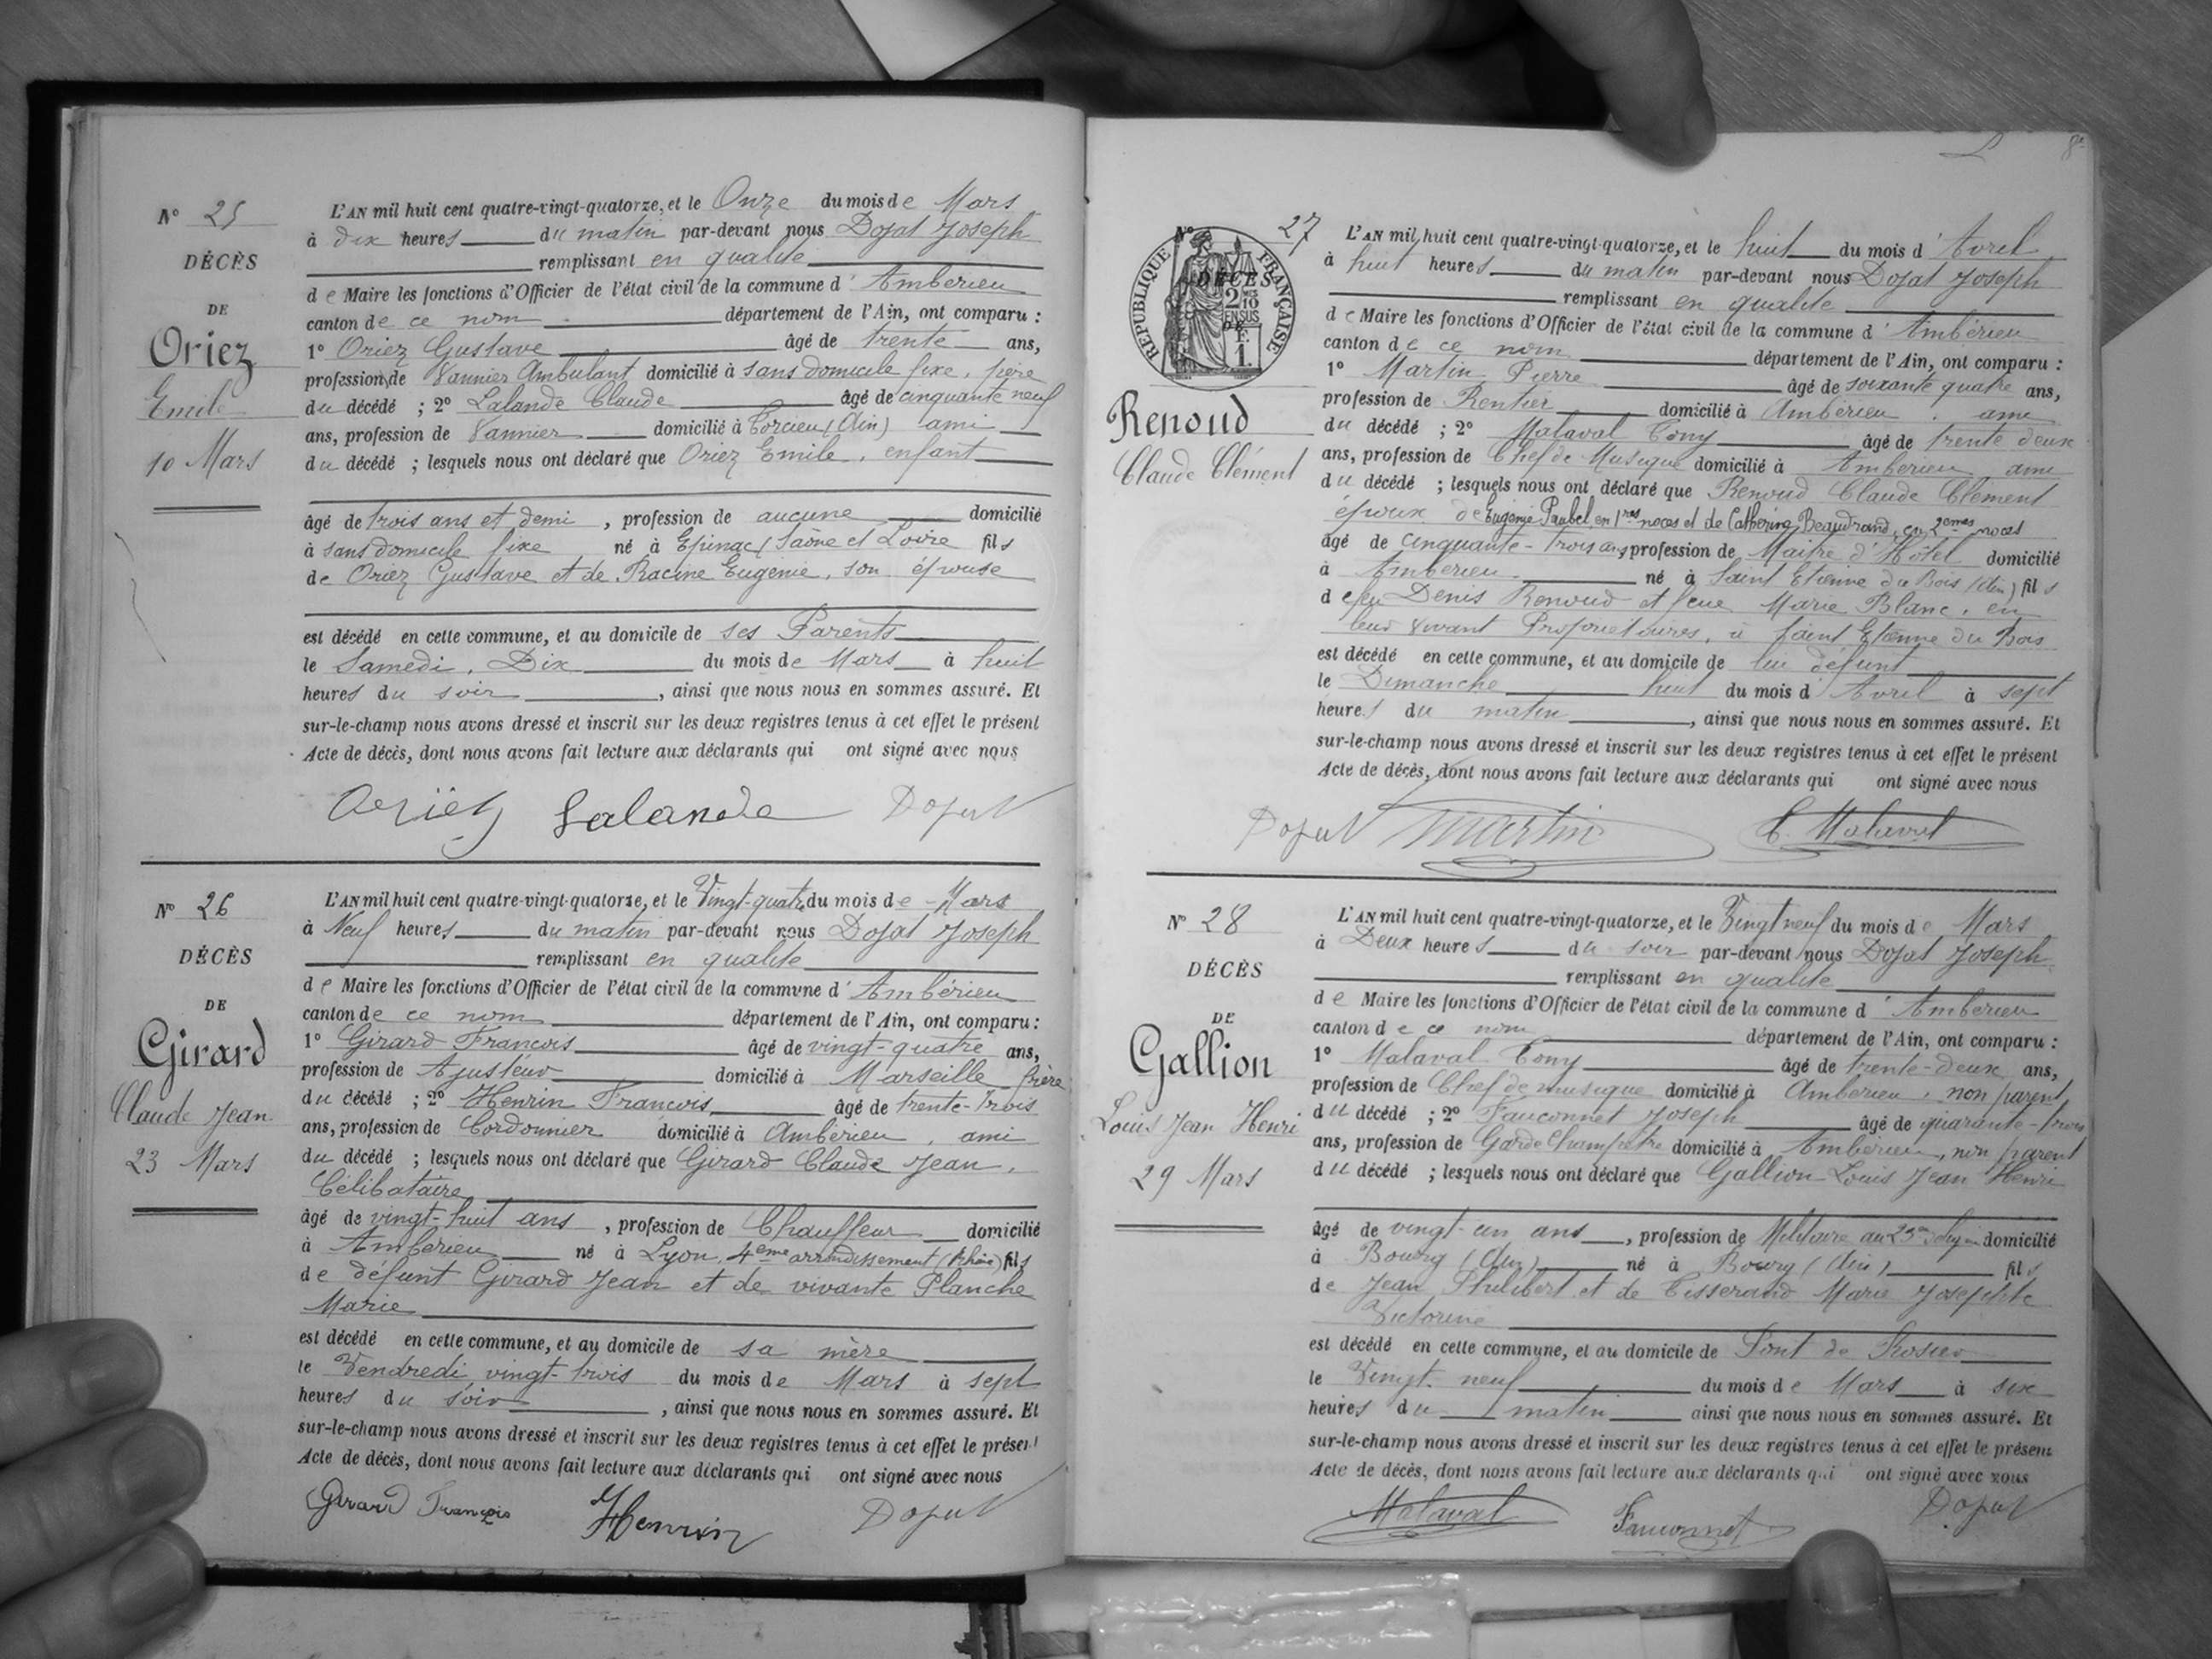 N° 25
DÉCÈS
DE
Oriez
Emile
10 Mars
L'AN mil huit cent quatre-vingt-quatorze, et le Onze du mois de Mars
à dix heures du matin par-devant nous Dojat Joseph
remplissant en qualité
de Maire les fonctions d'Officier de l'état civil de la commune d'Ambérieu
canton de ce nom département de l'Ain, ont comparu :
1° Oriez Gustave âgé de trente ans,
profession de Vannier Ambulant domicilié à sans domicile fixe, père
du décédé ; 2° Lalande Claude âgé de cinquante neuf
ans, profession de Vannier domicilié à Torcieu (Ain) ami
du décédé ; lesquels nous ont déclaré que Oriez Emile, enfant
âgé de trois ans et demi , profession de aucune domicilié
à sans domicile fixe né à Epinac (Saône et Loire fils
de Oriez Gustave et de Racine Eugenie, son épouse
est décédé en cette commune, et au domicile de ses Parents
le Samedi, Dix du mois de Mars à huit
heures du soir , ainsi que nous nous en sommes assuré. Et
sur-le-champ nous avons dressé et inscrit sur les deux registres tenus à cet effet le présent
Acte de décès, dont nous avons fait lecture aux déclarants qui ont signé avec nous
Oriez Lalande Dojat
N° 26
DÉCÈS
DE
Girard
Claude Jean
23 Mars
L'AN mil huit cent quatre-vingt-quatorze, et le Vingt-quatre du mois de Mars
à Neuf heures du matin par-devant nous Dojat Joseph
remplissant en qualité
de Maire les fonctions d'Officier de l'état civil de la commune d'Ambérieu
canton de ce nom département de l'Ain, ont comparu :
1° Girard Francois âgé de vingt-quatre ans,
profession de Ajusteur domicilié à Marseille frère
du décédé ; 2° Henrin Francois âgé de trente-trois
ans, profession de Cordonnier domicilié à Ambérieu, ami
du décédé ; lesquels nous ont déclaré que Girard Claude Jean,
Célibataire
âgé de vingt-huit ans , profession de Chauffeur domicilié
à Ambérieu né à Lyon, 4eme arrondissement (Rhône) fils
de défunt Girard Jean et de vivante Planche
Marie
est décédé en cette commune, et au domicile de sa mère
le Vendredi vingt-trois du mois de Mars à sept
heures du soir , ainsi que nous nous en sommes assuré. Et
sur-le-champ nous avons dressé et inscrit sur les deux registres tenus à cet effet le présent
Acte de décès, dont nous avons fait lecture aux déclarants qui ont signé avec nous
Girard François Henrin Dojat
8e
N° 27
RÉPUBLIQUE FRANÇAISE
DÉCÈS
2/10 EN SUS
DE
F. 1.
Renoud
Claude Clément
L'AN mil huit cent quatre-vingt-quatorze, et le huit du mois d'Avril
à huit heures du matin par-devant nous Dojat Joseph
remplissant en qualité
de Maire les fonctions d'Officier de l'état civil de la commune d'Ambérieu
canton de ce nom département de l'Ain, ont comparu :
1° Martin Pierre âgé de soixante quatre ans,
profession de Rentier domicilié à Ambérieu, ami
du décédé ; 2° Malaval Tony âgé de trente deux
ans, profession de Chef de Musique domicilié à Ambérieu ami
du décédé ; lesquels nous ont déclaré que Renoud Claude Clément
époux de Eugénie Paubel en 1res noces et de Catherine Beaudrand, en 2emes noces
âgé de cinquante-trois ans, profession de Maître d'Hôtel domicilié
à Ambérieu né à Saint Etienne du Bois (Ain) fils
de feu Denis Renoud et feue Marie Blanc, en
leur vivant Propriétaires, à Saint Etienne du Bois
est décédé en cette commune, et au domicile de lui défunt
le Dimanche huit du mois d'Avril à sept
heures du matin , ainsi que nous nous en sommes assuré. Et
sur-le-champ nous avons dressé et inscrit sur les deux registres tenus à cet effet le présent
Acte de décès, dont nous avons fait lecture aux déclarants qui ont signé avec nous
Dojat Martin Malaval
N° 28
DÉCÈS
DE
Gallion
Louis Jean Henri
29 Mars
L'AN mil huit cent quatre-vingt-quatorze, et le Vingt neuf du mois de Mars
à Deux heures du soir par-devant nous Dojat Joseph
remplissant en qualité
de Maire les fonctions d'Officier de l'état civil de la commune d'Ambérieu
canton de ce nom département de l'Ain, ont comparu :
1° Malaval Tony âgé de trente-deux ans,
profession de Chef de musique domicilié à Ambérieu, non parent
du décédé ; 2° Fauconnet Joseph âgé de quarante-trois
ans, profession de Garde Champêtre domicilié à Ambérieu, non parent
du décédé ; lesquels nous ont déclaré que Gallion Louis Jean Henri
âgé de vingt-un ans , profession de Militaire au 23e domicilié
à Bourg (Ain) né à Bourg (Ain) fils
de Jean Philibert et de Tisserand Marie Josephte
Victorine
est décédé en cette commune, et au domicile de Pont de
le Vingt-neuf du mois de Mars à six
heures du matin ainsi que nous nous en sommes assuré. Et
sur-le-champ nous avons dressé et inscrit sur les deux registres tenus à cet effet le présent
Acte de décès, dont nous avons fait lecture aux déclarants qui ont signé avec nous
Malaval Fauconnet Dojat